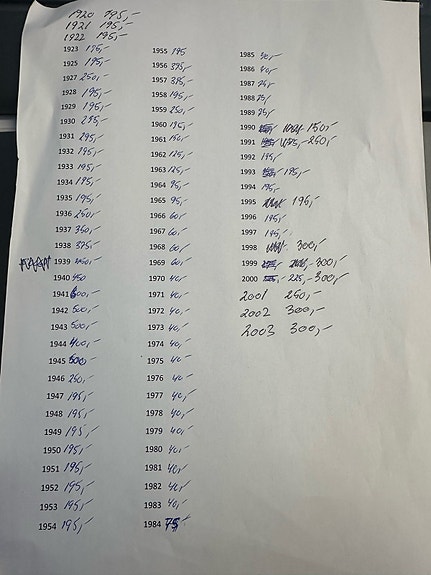 1920 195,-
1921 195,-
1922 195,-
1923 195,-
1925 195,-
1927 250,-
1928 195,-
1929 195,-
1930 295,-
1931 295,-
1932 195,-
1933 195,-
1934 195,-
1935 195,-
1936 250,-
1937 350,-
1938 375,-
1939
1940 450
1941 500,-
1942 500,-
1943 500,-
1944 400,-
1945 500,-
1946 250,-
1947 195,-
1948 195,-
1949 195,-
1950 195,-
1951 195,-
1952 195,-
1953 195,-
1954 195,-
1955 195
1956 395,-
1957 395,-
1958 195,-
1959 250,-
1960 195,-
1961 150,-
1962 125,-
1963 125,-
1964 95,-
1965 95,-
1966 60,-
1967 60,-
1968 60,-
1969 60,-
1970 40,-
1971 40,-
1972 40,-
1973 40,-
1974 40,-
1975 40,-
1976 40,-
1977 40,-
1978 40,-
1979 40,-
1980 40,-
1981 40,-
1982 40,-
1983 40,-
1984 75,-
1985
1986
1987 75,-
1988 75,-
1989 75,-
1990 150,-
1991 250,-
1992 195,-
1993 195,-
1994 195,-
1995 195,-
1996 195,-
1997 195,-
1998 300,-
1999 300,-
2000 225,- 300,-
2001 250,-
2002 300,-
2003 300,-